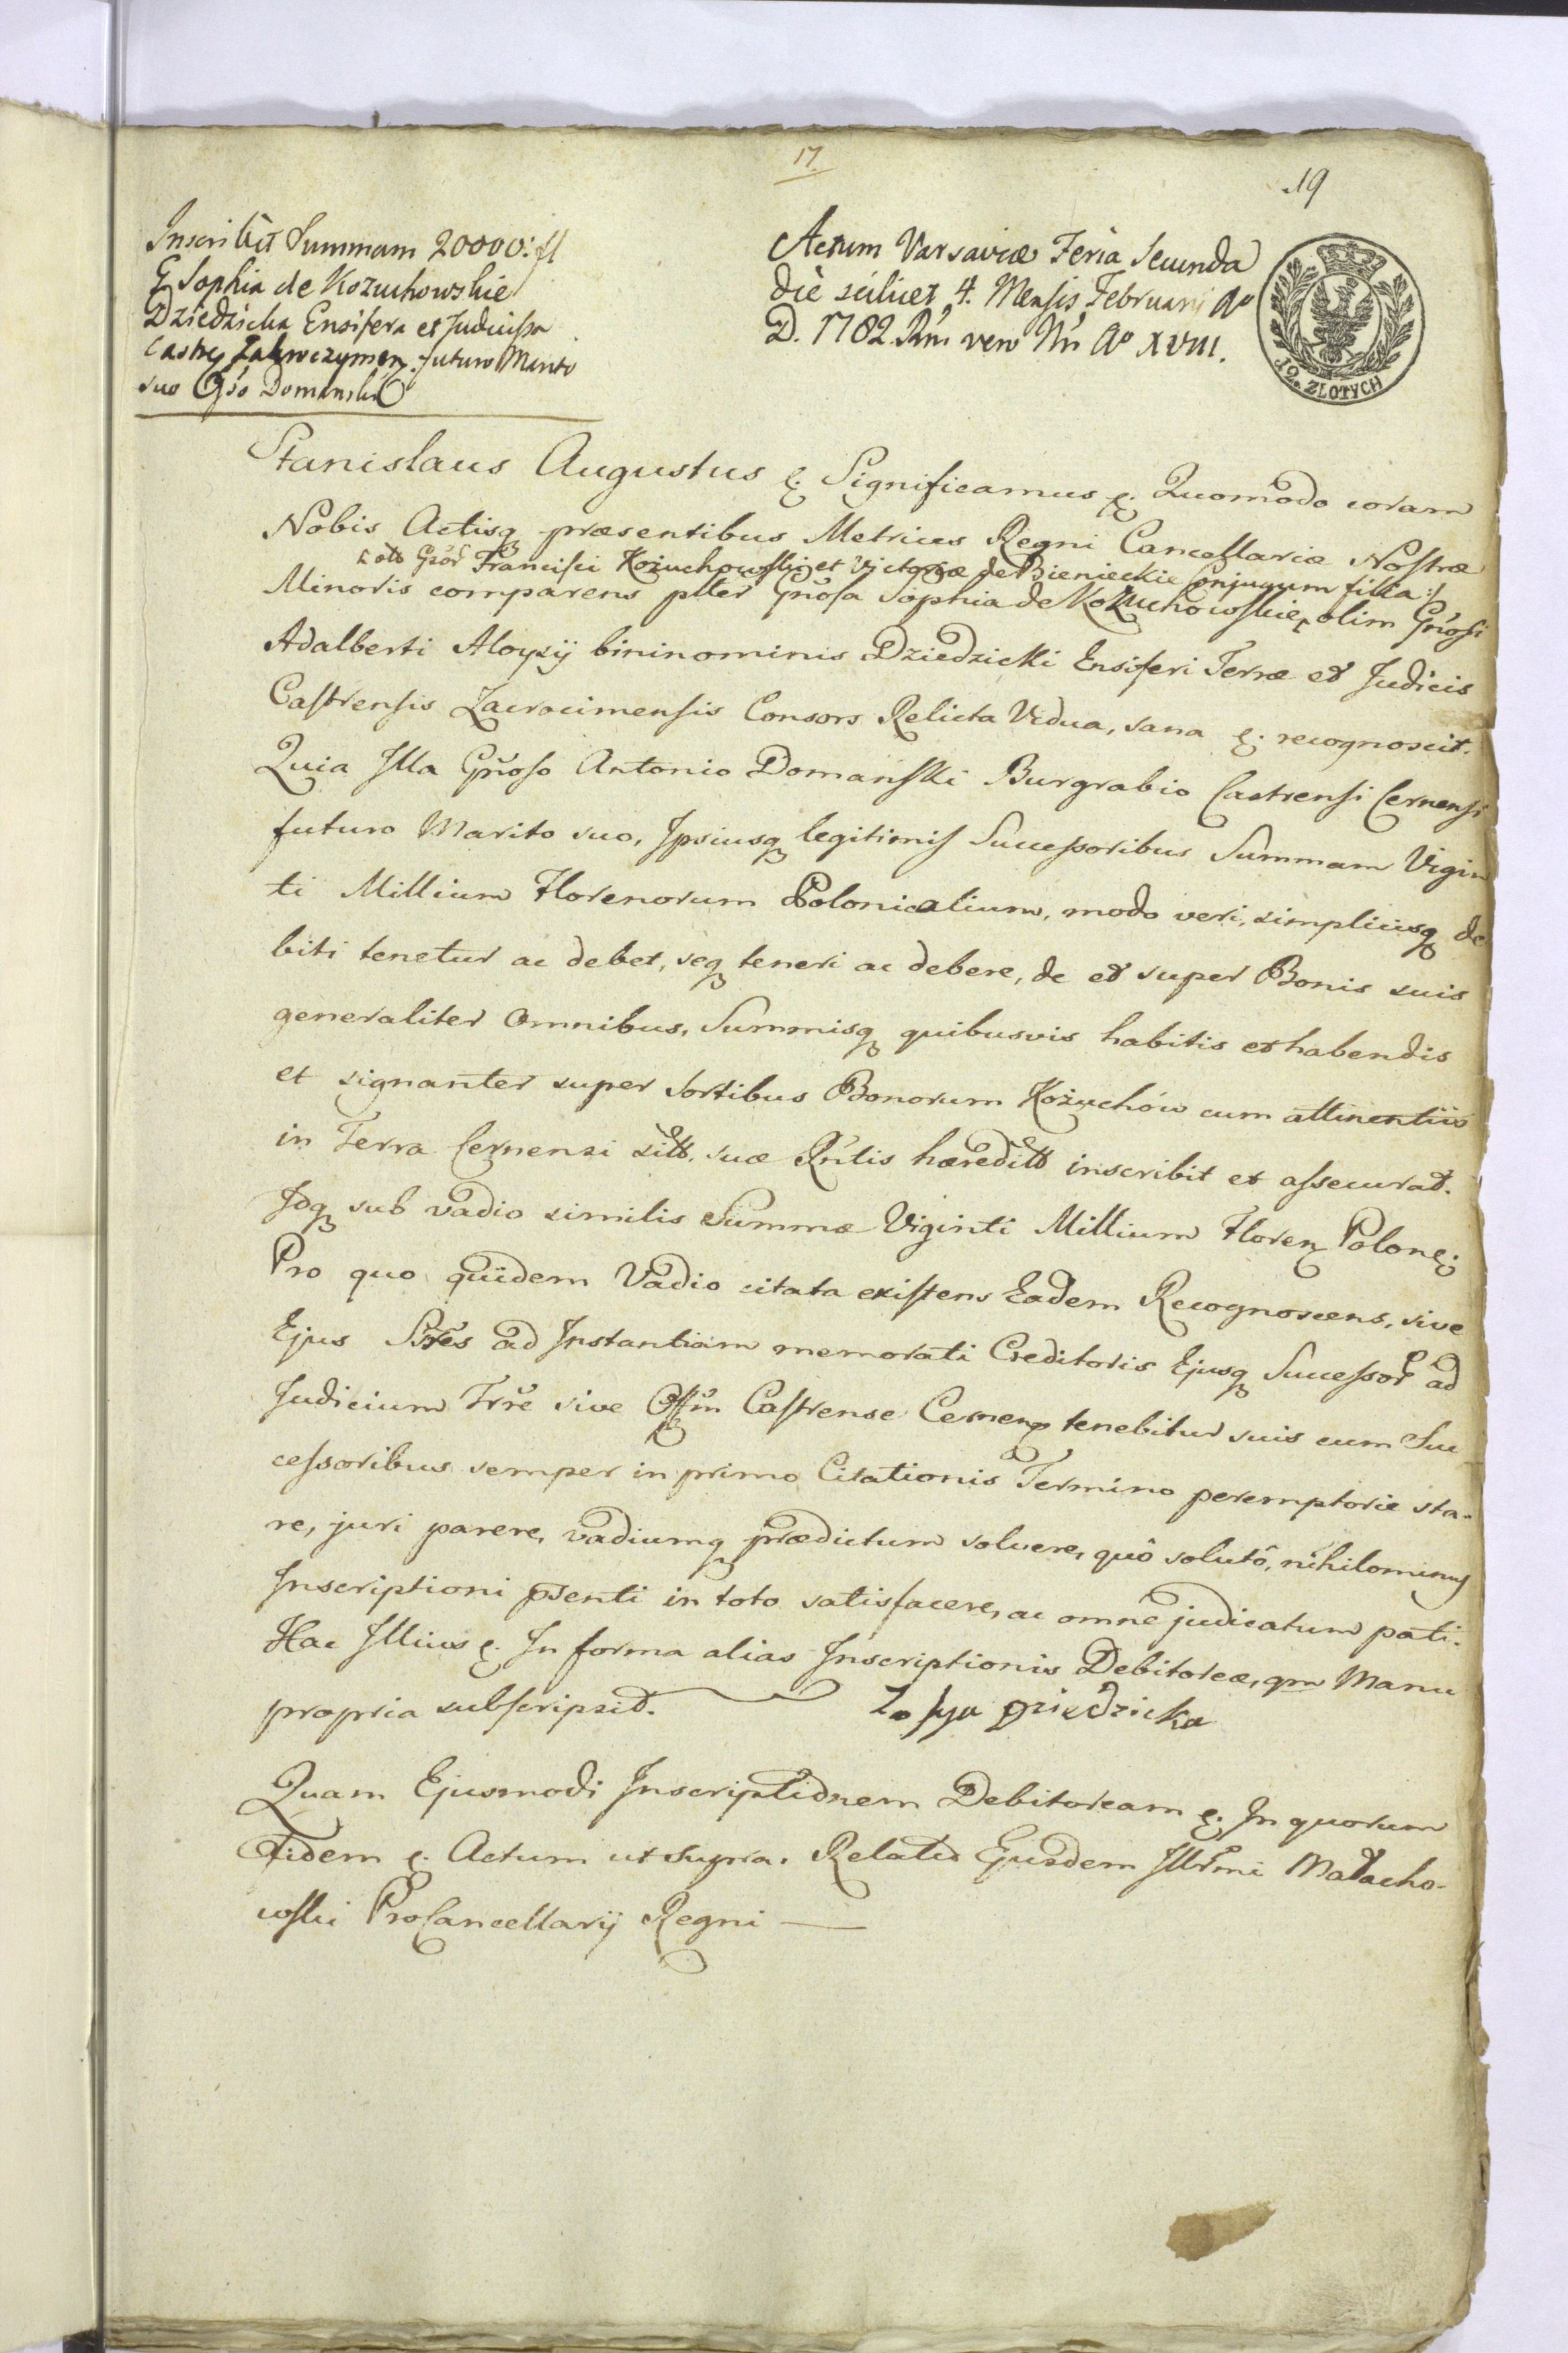 17.
19
Inscribit Summam 20000: fl
G Sophia de Kozuchowskie
Dziedzicka Ensifera et Judicissa
Castrę Zakroczymen: futuro Marito
suo Gso Domanski
Actum Varsaviæ Feria Secunda
die scilicet 4. Mensis Februarij Ao
D. 1782. Rni vero Nri Ao XVIII.
12. ZLOTYCH
Stanislaus Augustus &. Significamus &. Quomodo coram
Nobis Actisq præsentibus Metrices Regni Cancellariæ Nostræ
Gsor Francisci Kożuchowski et Victoriæ de Bienieckie Conjugum filia :/
Minoris comparens plter Gñosa Sophia de Kożuchowskie, olim Gñosi
Adalberti Aloysij bininominis Dziedzicki Ensiferi Terræ et Judicis
Castrensis Zacrocimensis Consors Relicta Vidua, sana &. recognoscit.
Quia Illa Gñoso Antonio Domanski Burgrabio Castrensi Cernensi
futuro Marito suo, Ipsiusq legitimis Successoribus Summam Vigin
ti Millium Florenorum Polonicalium, modo veri, simpliciisq de
biti tenetur ac debet, seq teneri ac debere, de et super Bonis suis
generaliter omnibus, Summisq quibusvis habitis et habendis
et signanter super Sortibus Bonorum Kożuchów cum attinentiis
in Terra Cernensi sitt. suæ Rntis hæreditt inscribit et assecurat.
Idq sub vadio similis Summæ Viginti Millium Floren Polon&.
Pro quo quidem Vadio citata existens Eadem Recognoscens, sive
Ejus Sres ad Instantiam memorati Creditoris Ejusq Successor ad
Judicium Trre sive Offm Castrense Cernen tenebitur suis cum Suc
cessoribus semper in primo Citationis Termino peremptorie sta-
re, juri parere, vadiumq prædictum solvere, quô solutô, nihilominus
Inscriptioni psenti in toto satisfacere, ac omne judicatum pati.
Hac Illius &. In forma alias Inscriptionis Debitoreæ, qm Manu
propria subscripsit. Zofya Dziedzicka
Quam Ejusmodi Inscriptionem Debitoream &. In quorum
Fidem &. Actum ut supra. Relatio Ejusdem Illrmi Małacho-
wski ProCancellarij Regni —